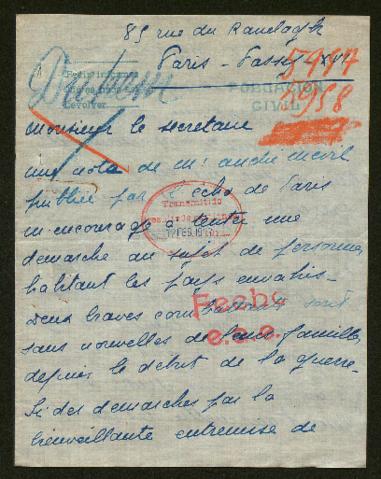 85 rue du Ranelagh
Paris - Passy XVI
5997
5958
POBLACIÓN
CIVIL
Devolver
Monsieur le secrétaire
une note de Mr André Mévil
publiée par l'écho de Paris
m'encourage à tenter une
Transmitido
FEB. 1917
démarche au sujet de personnes
habitant les pays envahis.
Fecho
Deux braves combattants sont
sans nouvelles de leurs familles
e.e.e.
depuis le début de la guerre.
Si des démarches par la
bienveillante entremise de